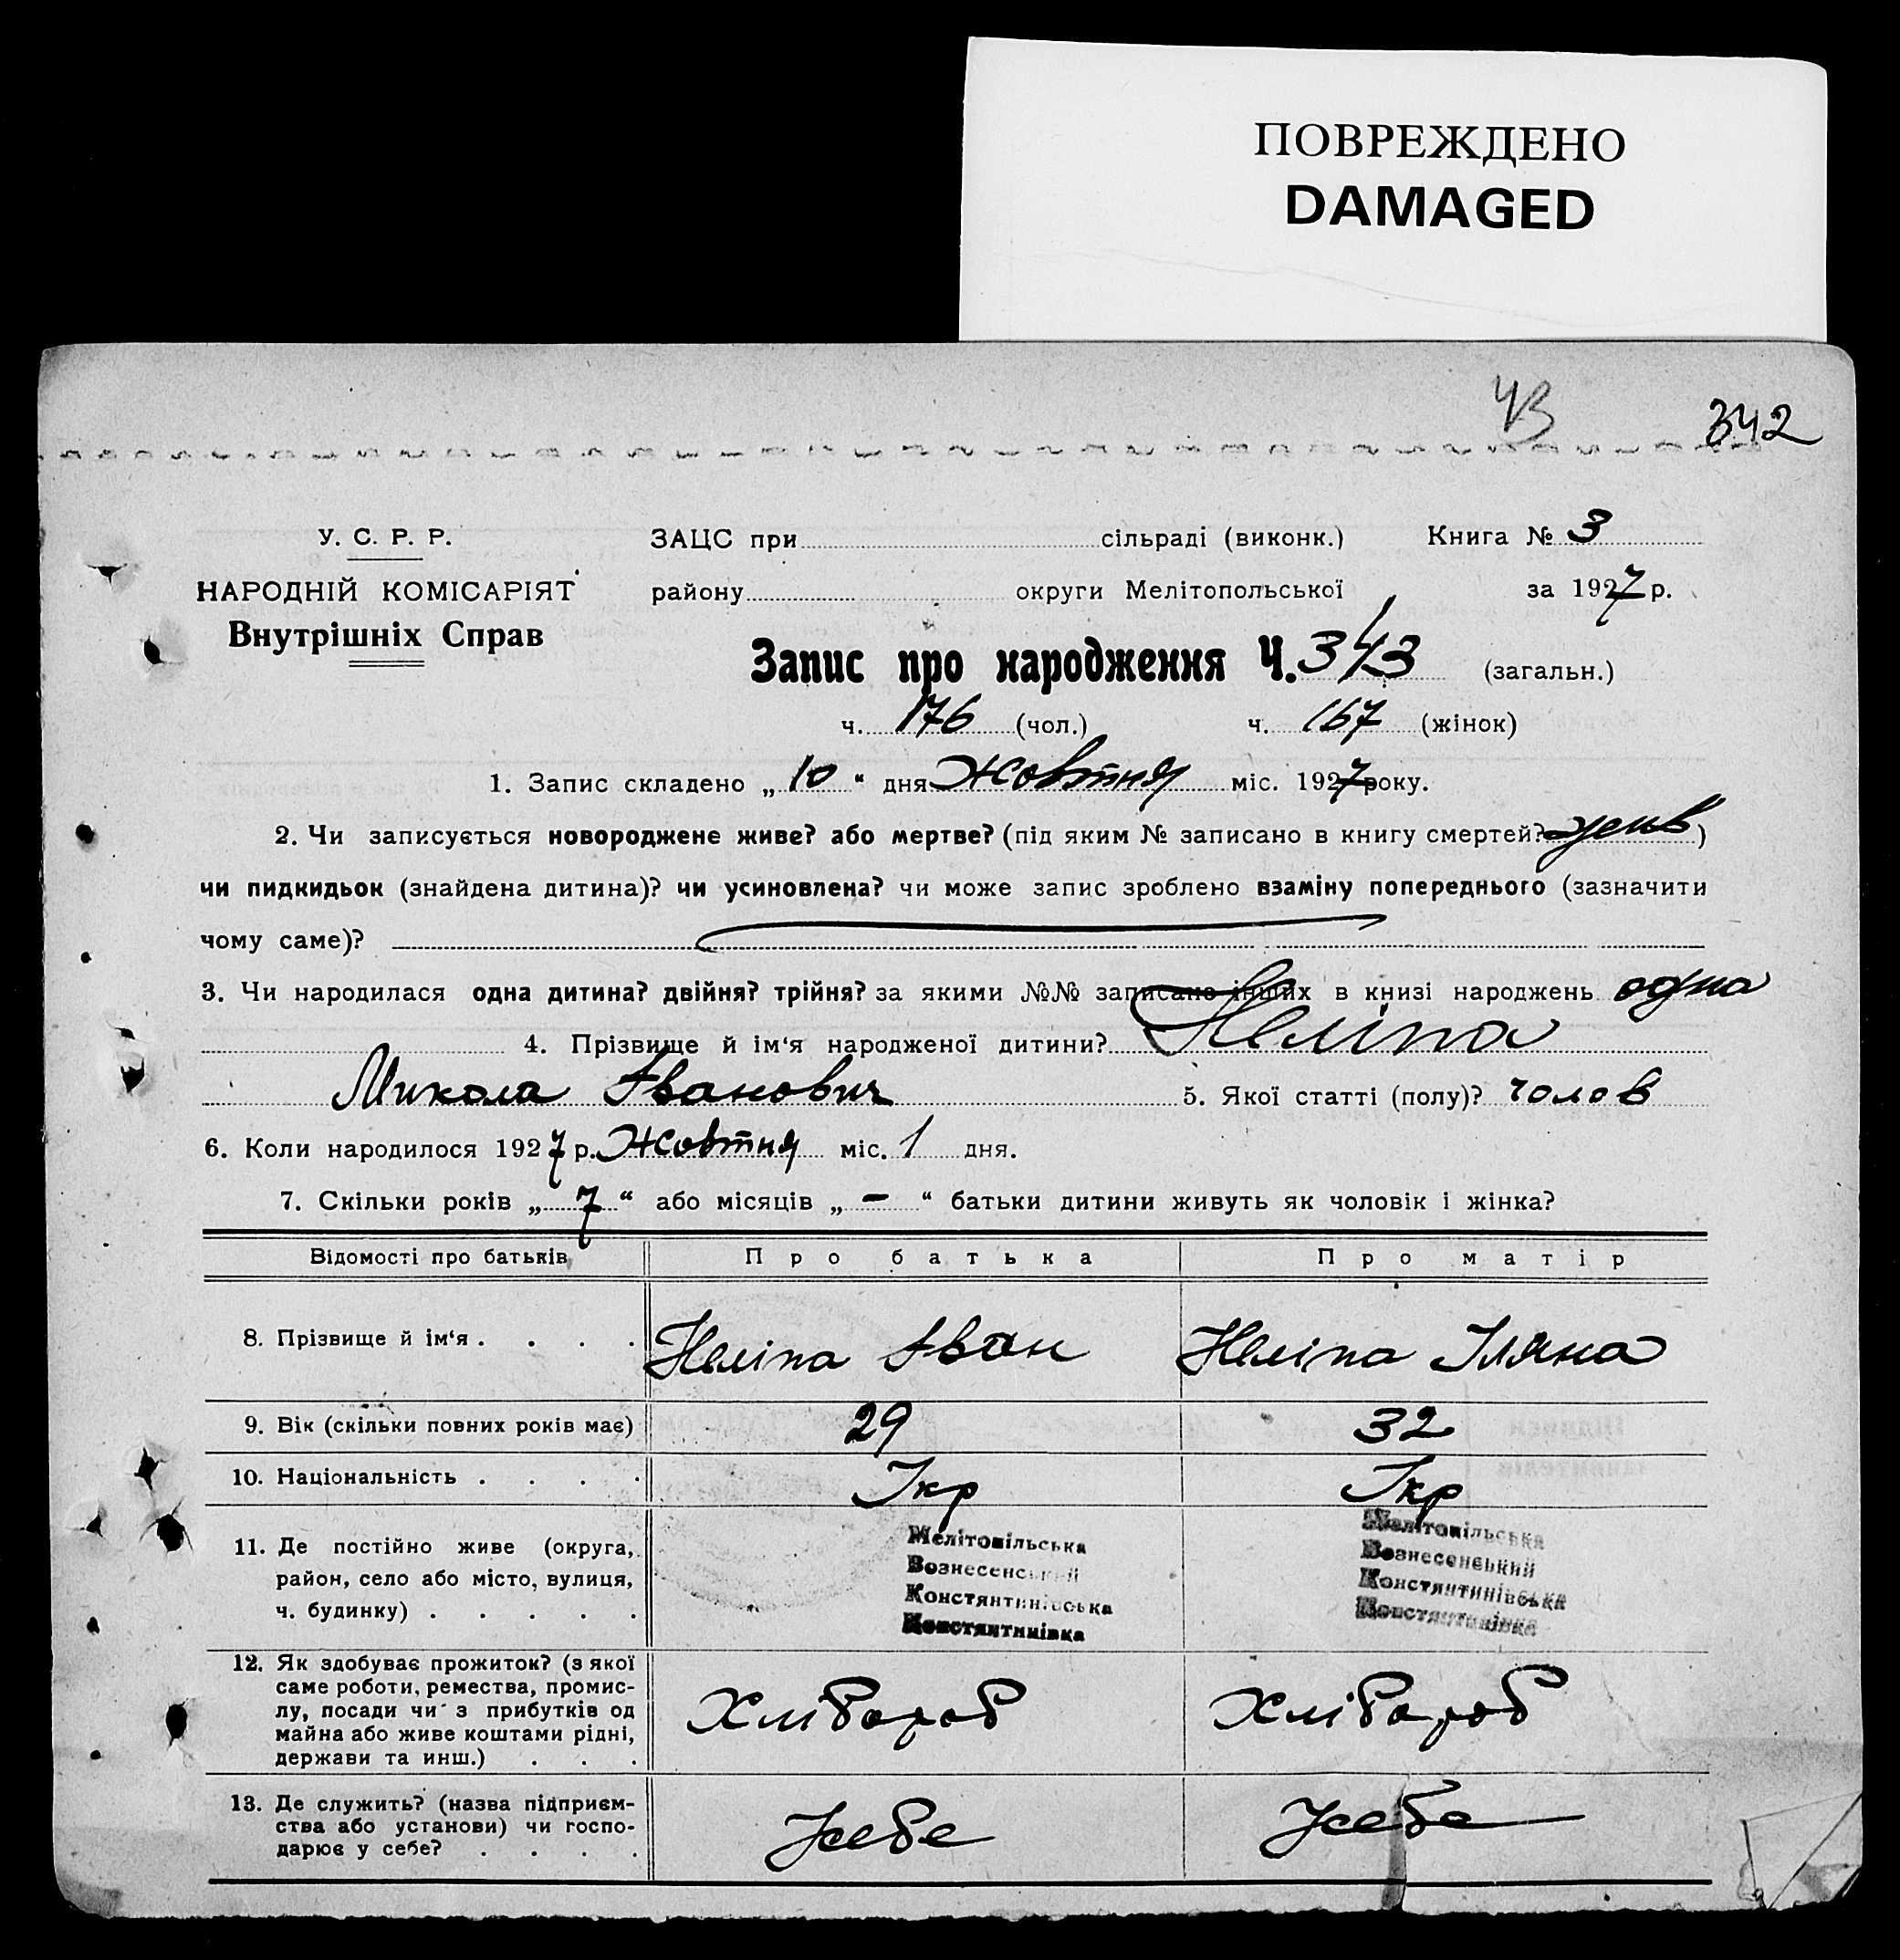 ПОВРЕЖДЕНО
DAMAGED
43
342
У. С. Р. Р.
ЗАЦС при сільраді (виконк.) Книга № 3
НАРОДНІЙ КОМІСАРІЯТ
району округи Мелітопольської за 1927 р.
Внутрішніх Справ
Запис про народження Ч. 343 (загальн.)
ч. 176 (чол.) ч. 167 (жінок)
1. Запис складено „ 10 “ дня Жовтня міс. 1927 року.
2. Чи записується новороджене живе? або мертве? (під яким № записано в книгу смертей? )
чи пидкидьок (знайдена дитина)? чи усиновлена? чи може запис зроблено взаміну попереднього (зазначити
чому саме)?
3. Чи народилася одна дитина? двійня? трійня? за якими №№ записано інших в книзі народжень одна
4. Прізвище й ім‘я народженої дитини? Неліпа
Микола Іванович 5. Якої статті (полу)? чолов
6. Коли народилося 1927 р. Жовтня міс. 1 дня.
7. Скільки років „ 7 “ або місяців „ – “ батьки дитини живуть як чоловік і жінка?
Відомості про батьків Про батька Про матір
8. Прізвище й ім‘я . . . . Неліпа Іван Неліпа Уляна
9. Вік (скільки повних років має) 29 32
10. Національність . . . . Укр Укр
11. Де постійно живе (округа,
район, село або місто, вулиця,
ч. будинку) . . . . .
Мелітопільська
Вознесенський
Констянтинівська
Констянтинівка
Мелітопільська
Вознесенський
Констянтинівська
Констянтинівка
12. Як здобуває прожиток? (з якої
саме роботи, ремества, промис-
лу, посади чи з прибутків од
майна або живе коштами рідні,
держави та инш.) . . .
Хлібороб Хлібороб
13. Де служить? (назва підприєм-
ства або установи) чи госпо-
дарює у себе? . . . .
Усебе Усебе